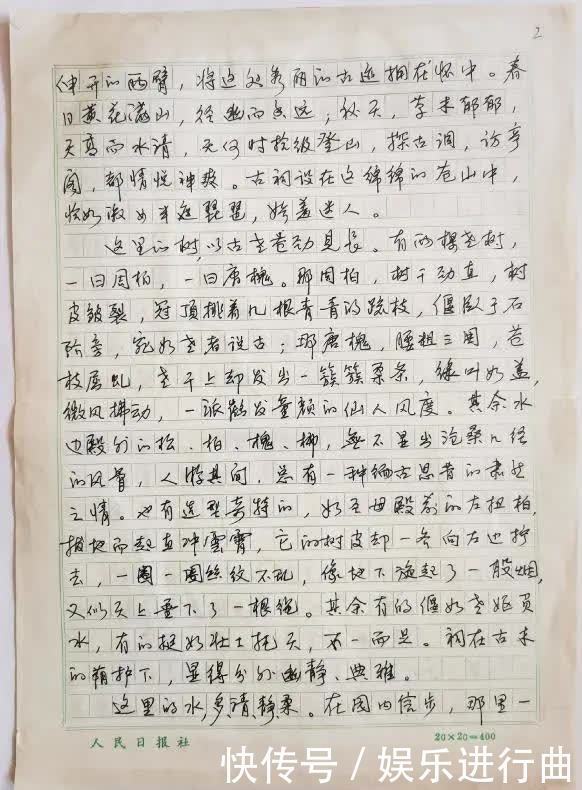 2
伸开的两臂，将这处秀丽的古迹拥在怀中。春
日黄花满山，径幽而香远；秋天，草木郁郁，
天高而水清，无何时拾级登山，探古洞，访亭
阁，都情悦神爽。古祠设在这绵绵的苍山中，
恰如淑女半遮琵琶，娇羞迷人。
这里的树，以古老苍劲见长。有两棵老树，
一曰周柏，一曰唐槐。那周柏，树干劲直，树
皮皴裂，冠顶挑着几根青青的疏枝，偃卧于石
阶旁，宛如老者说古；那唐槐，腰粗三围，苍
枝屈虬，老干上却发出一簇簇柔条，绿叶如盖，
微风拂动，一派鹤发童颜的仙人风度。其余水
边殿外的松、柏、槐、柳，无不显出沧桑几经
的风骨，人游其间，总有一种缅古思昔的肃然
之情。也有造型奇特的，如圣母殿前的左扭柏，
拔地而起直冲云霄，它的树皮却一齐向左边拧
去，一圈一圈丝纹不乱，像地下旋起了一股烟，
又似天上垂下了一根绳。其余有的偃如老妪负
水，有的挺如壮士托天，不一而足。祠在古木
的荫护下，显得分外幽静、典雅。
这里的水，多、清、静、柔。在园内信步，那里一
人民日报社
20×20=400
快传号／娱乐进行曲